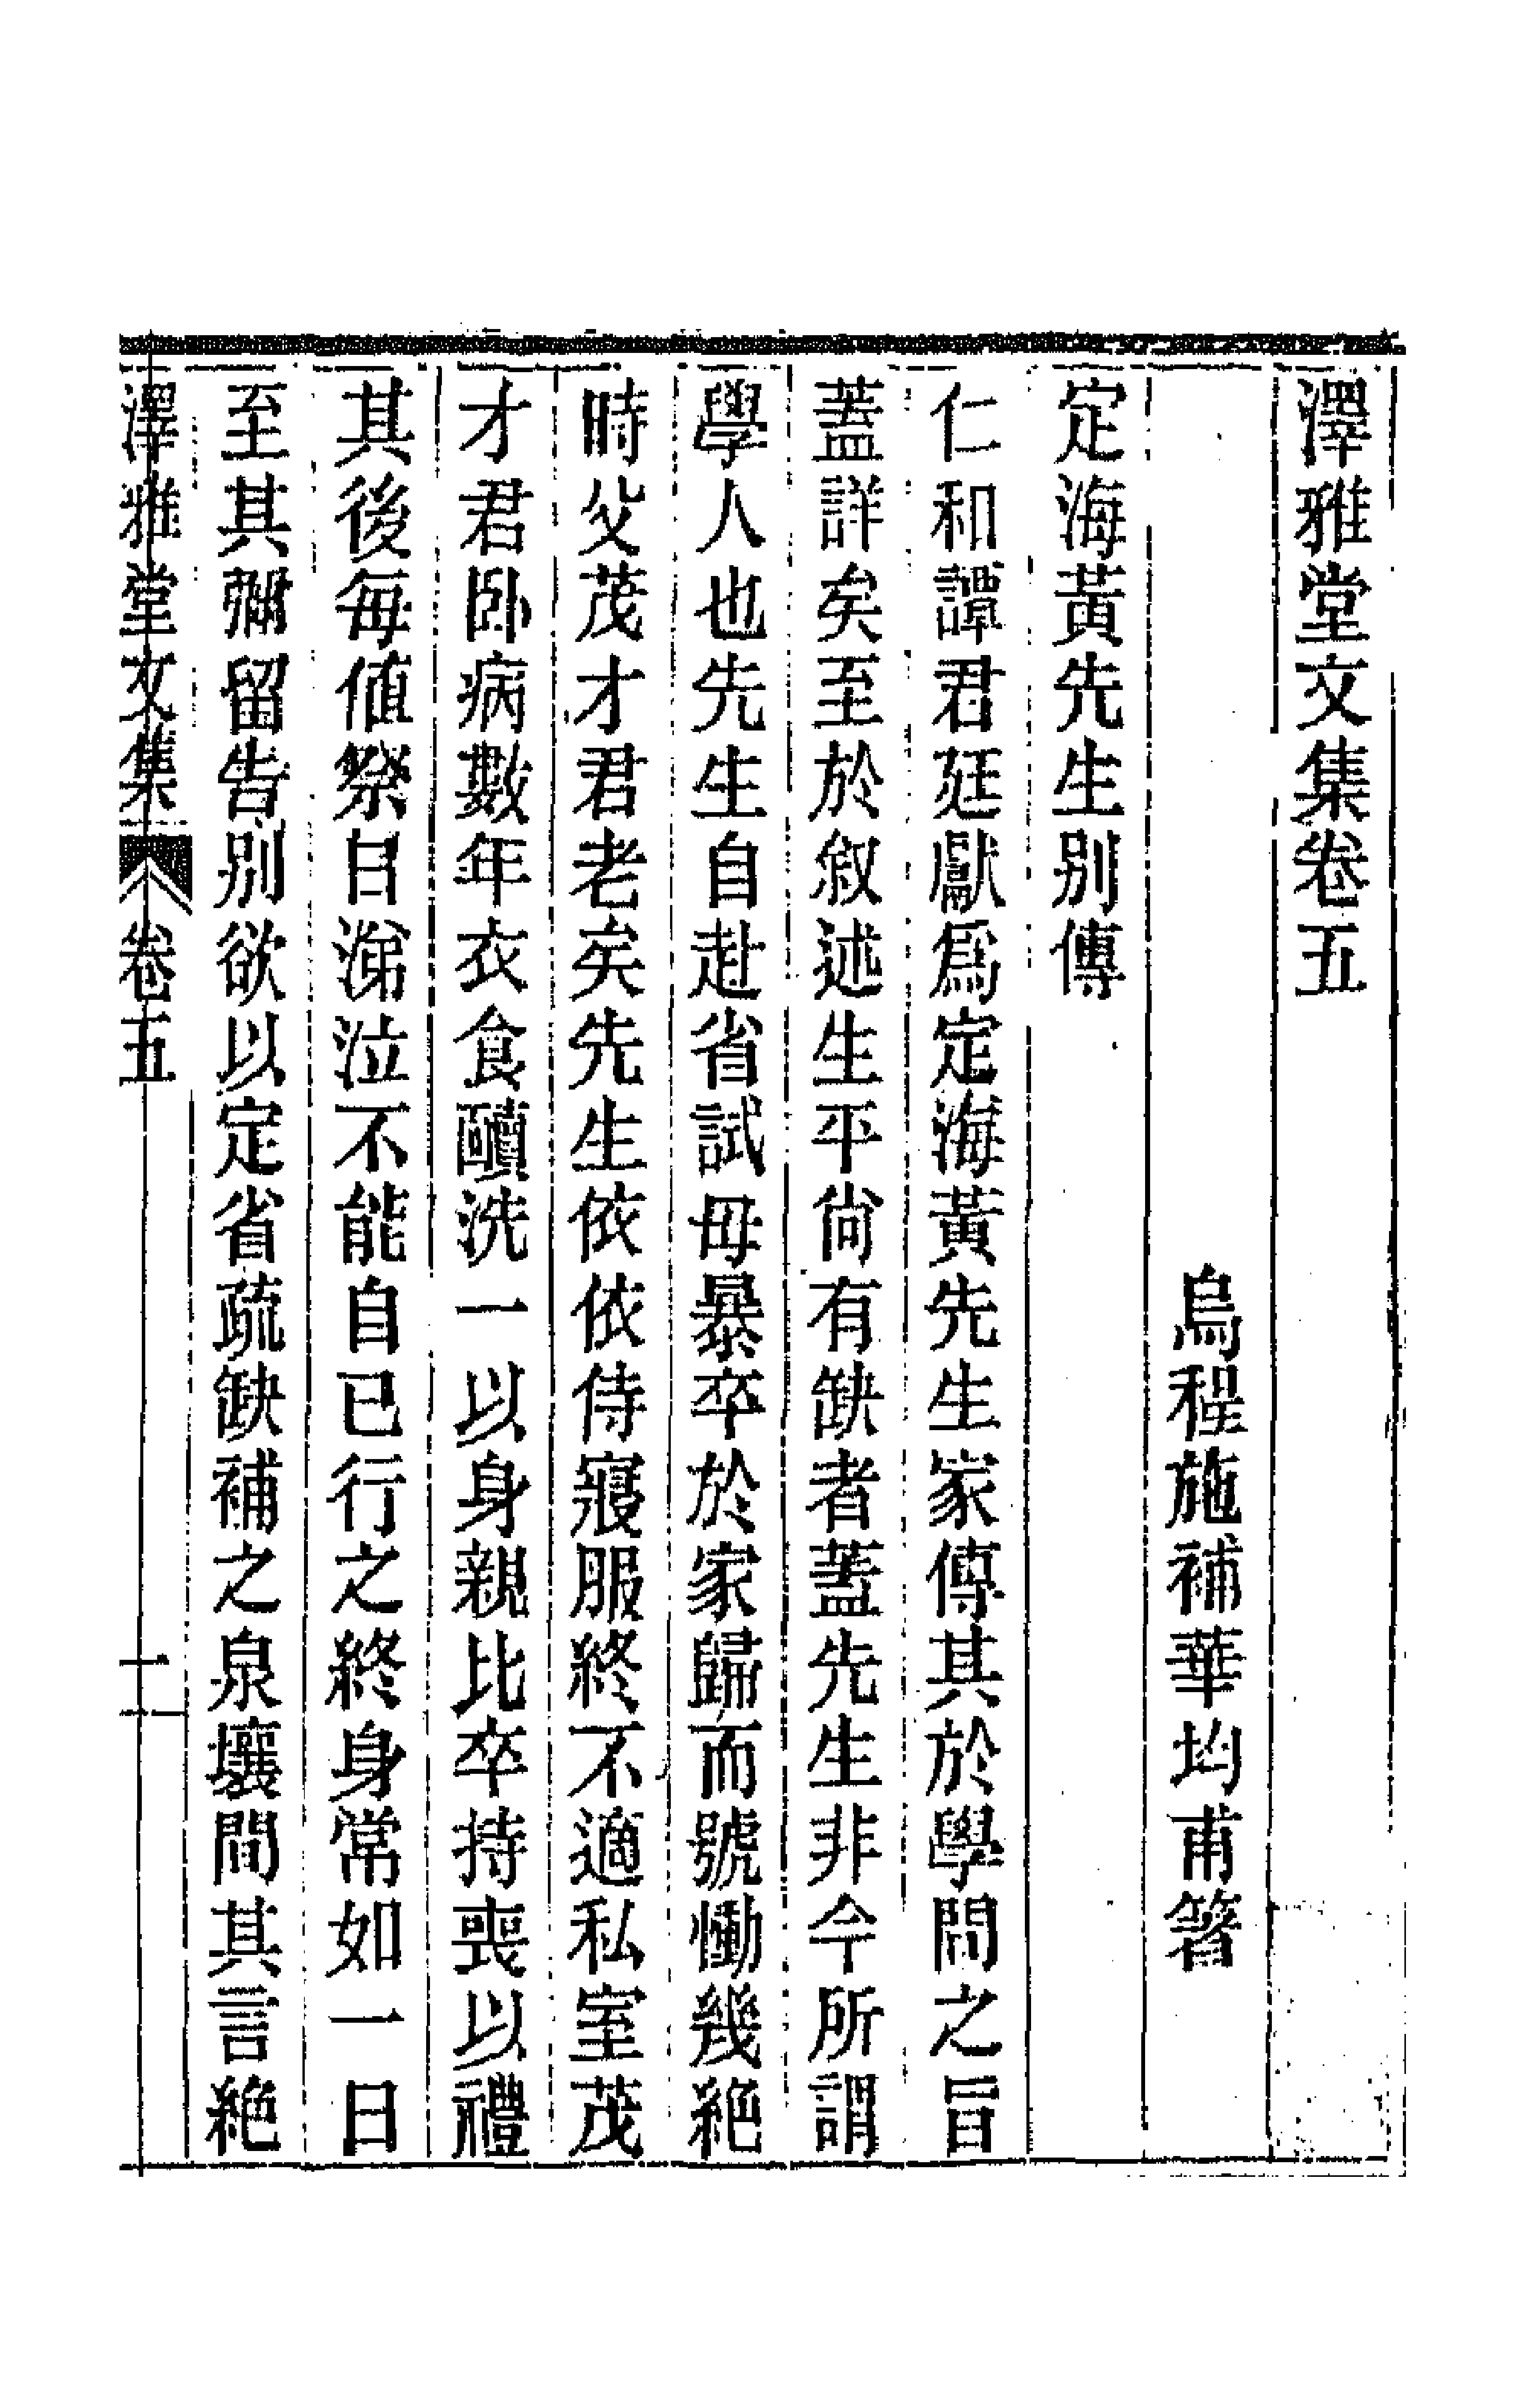 澤雅堂文集卷五
烏程施補華均甫箸
定海黃先生別傳
仁和譚君廷獻爲定海黃先生家傳其於學問之旨
蓋詳矣至於敘述生平尙有缺者蓋先生非今所謂
學人也先生自赴省試母暴卒於家歸而號慟幾絕
時父茂才君老矣先生依依侍寢服終不適私室茂
才君卧病數年衣食靧洗一以身親比卒持喪以禮
其後每値祭日涕泣不能自已行之終身常如一日
至其彌留告別欲以定省疏缺補之泉壤間其言絕
澤雅堂文集 卷五